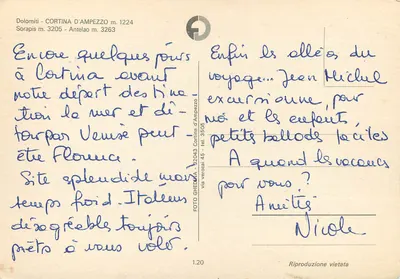 Dolomiti - CORTINA D'AMPEZZO m. 1224
Sorapis m. 3205 - Antelao m. 3263
Encore quelques jours
à Cortina avant
notre départ destina-
tion la mer et dé-
tour par Venise peut-
être Florence.
Site splendide mais
temps froid. Italiens
désagréables toujours
prêts à vous voler.
FOTO GHEDINA - 32043 Cortina d'Ampezzo
via verocai 45 - tel. 3505
Enfin les aléas du
voyage... Jean Michel
excursionne, pour
moi et les enfants,
petites ballades faciles
A quand les vacances
pour vous?
Amitiés
Nicole
120
Riproduzione vietata